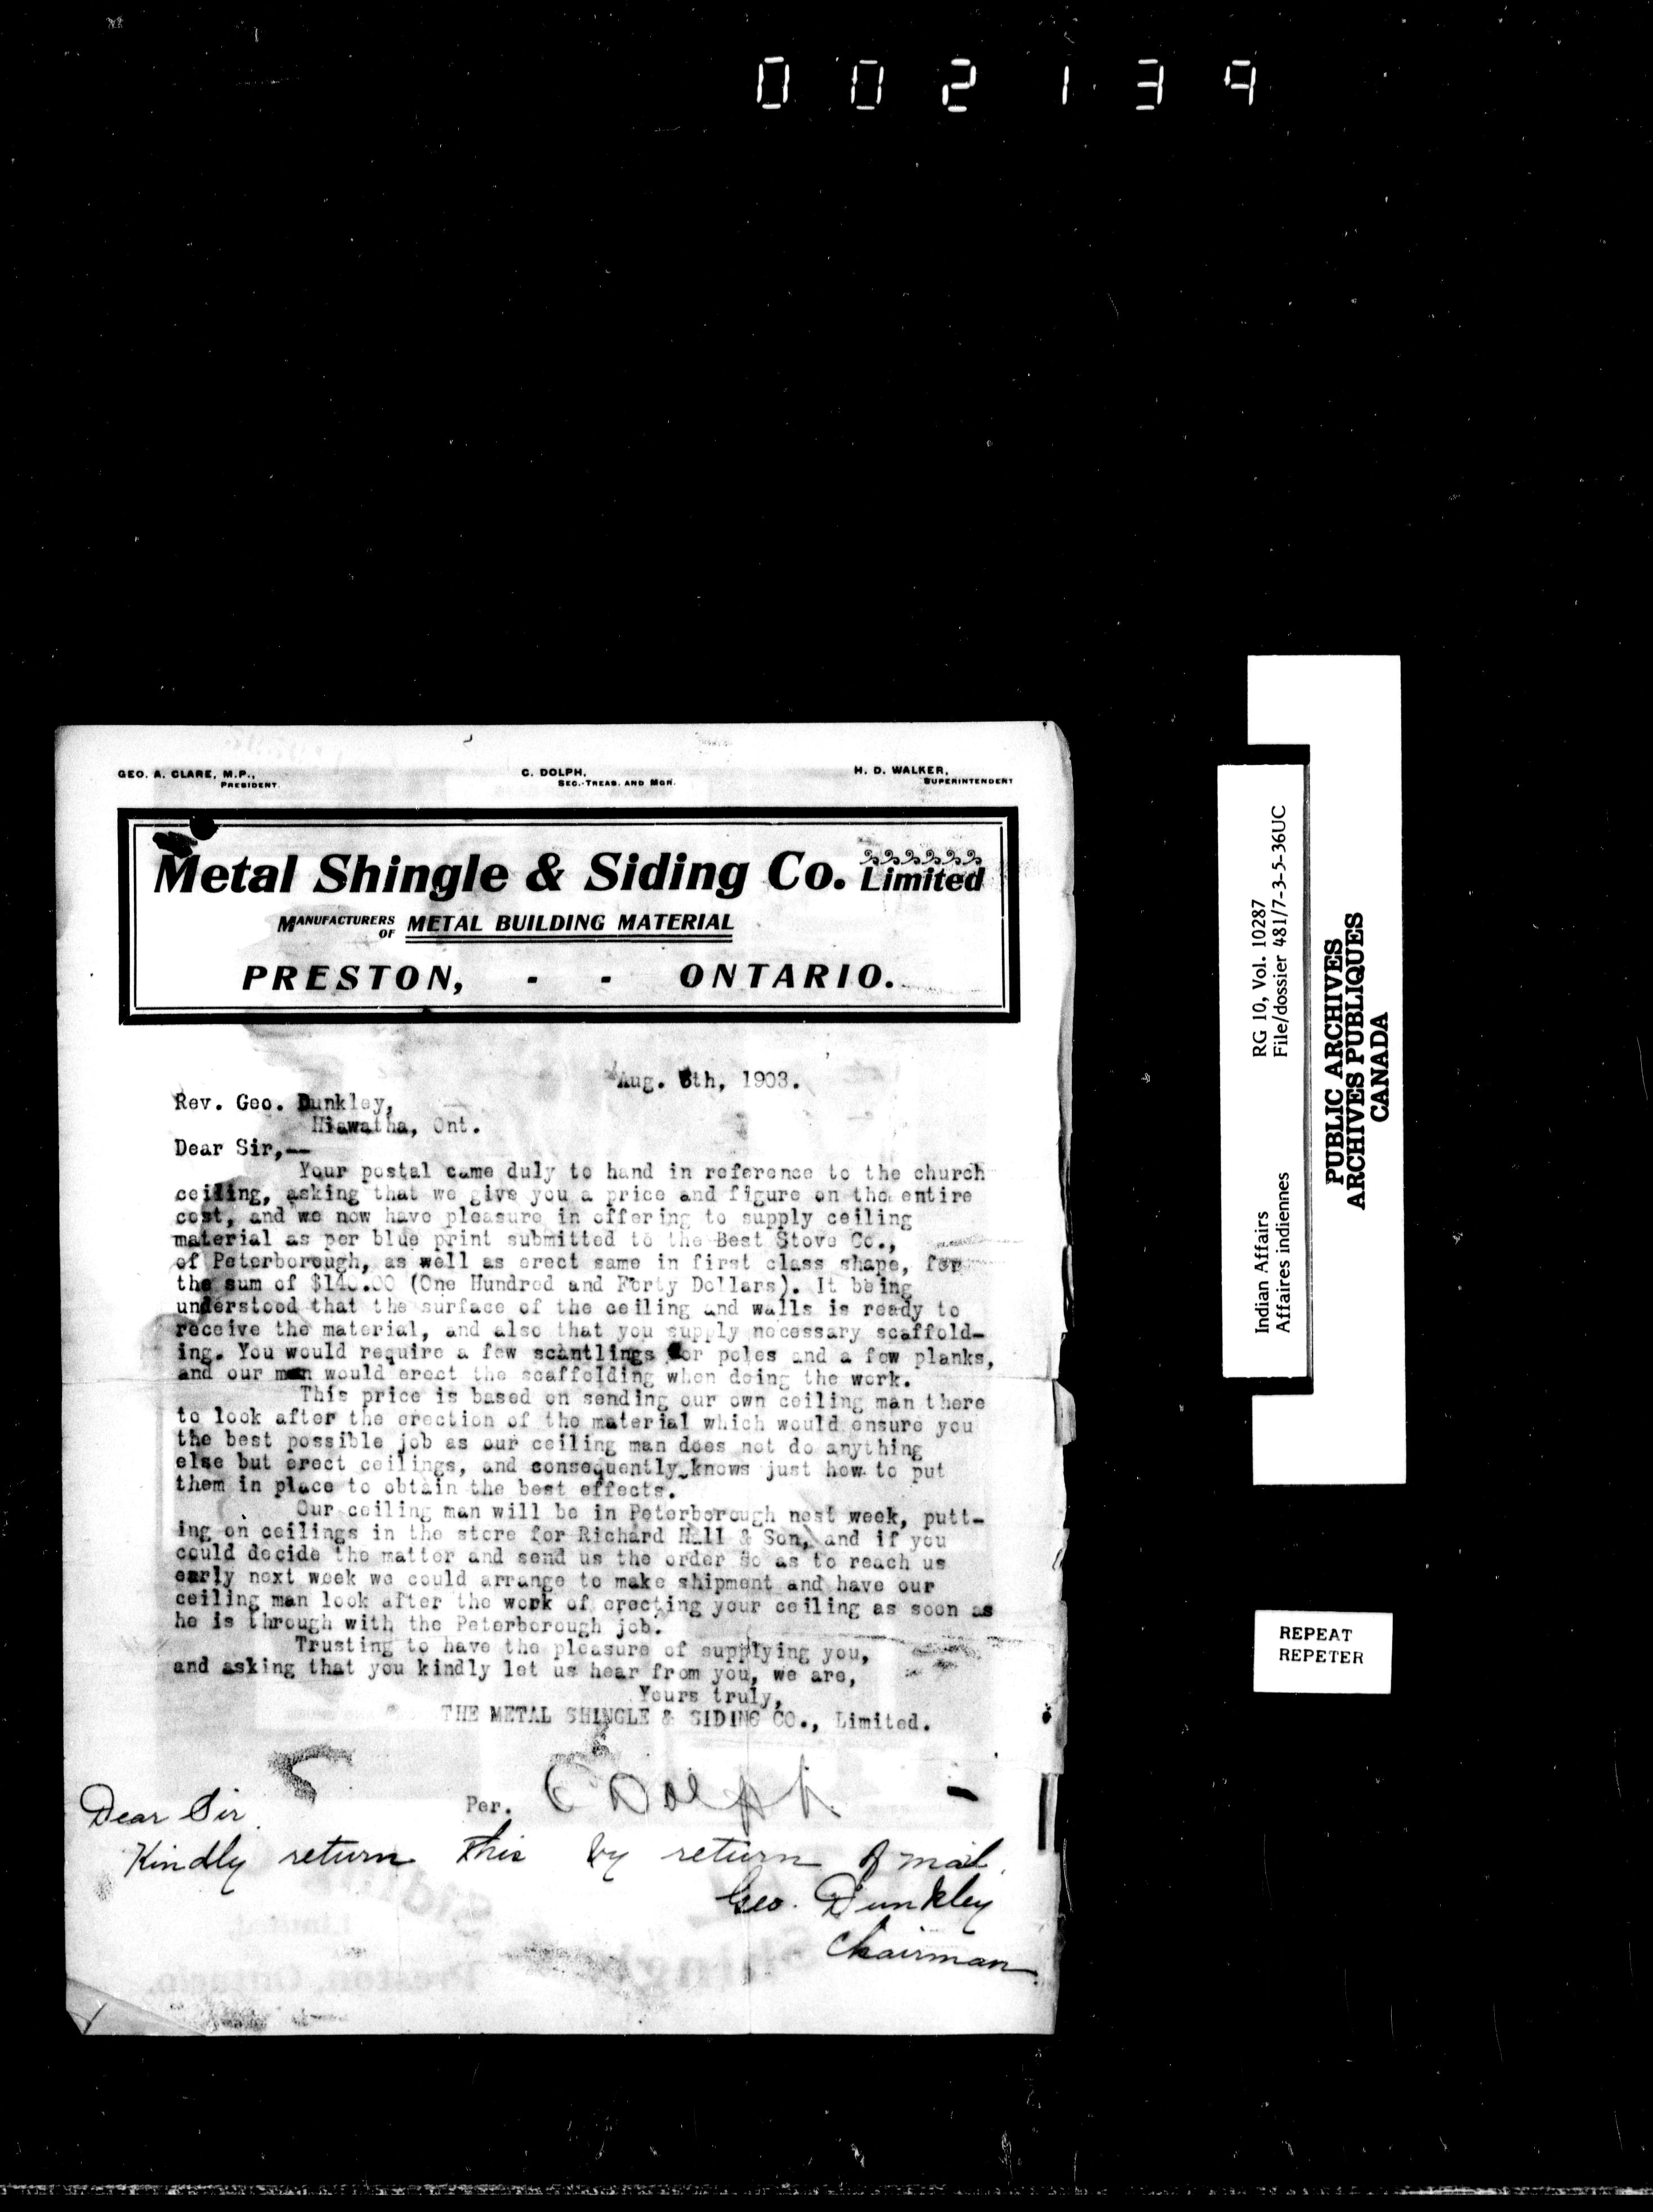 0 0 2 1 3 9
GEO. A. CLARE, M.P.,
PRESIDENT.
C. DOLPH,
SEC.-TREAS. AND MGR.
H. D. WALKER,
SUPERINTENDENT
Metal Shingle & Siding Co. Limited
MANUFACTURERS OF METAL BUILDING MATERIAL
PRESTON, - - ONTARIO.
Aug. 8th, 1903.
Rev. Geo. Dunkley,
Hiawatha, Ont.
Dear Sir,--
Your postal came duly to hand in reference to the church
ceiling, asking that we give you a price and figure on the entire
cost, and we now have pleasure in offering to supply ceiling
material as per blue print submitted to the Best Stove Co.,
of Peterborough, as well as erect same in first class shape, for
the sum of $140.00 (One Hundred and Forty Dollars). It being
understood that the surface of the ceiling and walls is ready to
receive the material, and also that you supply necessary scaffold-
ing. You would require a few scantlings for poles and a few planks,
and our man would erect the scaffolding when doing the work.
This price is based on sending our own ceiling man there
to look after the erection of the material which would ensure you
the best possible job as our ceiling man does not do anything
else but erect ceilings, and consequently knows just how to put
them in place to obtain the best effects.
Our ceiling man will be in Peterborough next week, putt-
ing on ceilings in the store for Richard Hall & Son, and if you
could decide the matter and send us the order so as to reach us
early next week we could arrange to make shipment and have our
ceiling man look after the work of erecting your ceiling as soon as
he is through with the Peterborough job.
Trusting to have the pleasure of supplying you,
and asking that you kindly let us hear from you, we are,
Yours truly,
THE METAL SHINGLE & SIDING CO., Limited.
Per. C Dolph
Dear Sir
Kindly return this by return of mail.
Geo. Dunkley
Chairman
Indian Affairs RG 10, Vol. 10287
Affaires indiennes File/dossier 481/7-3-5-36UC
PUBLIC ARCHIVES
ARCHIVES PUBLIQUES
CANADA
REPEAT
REPETER